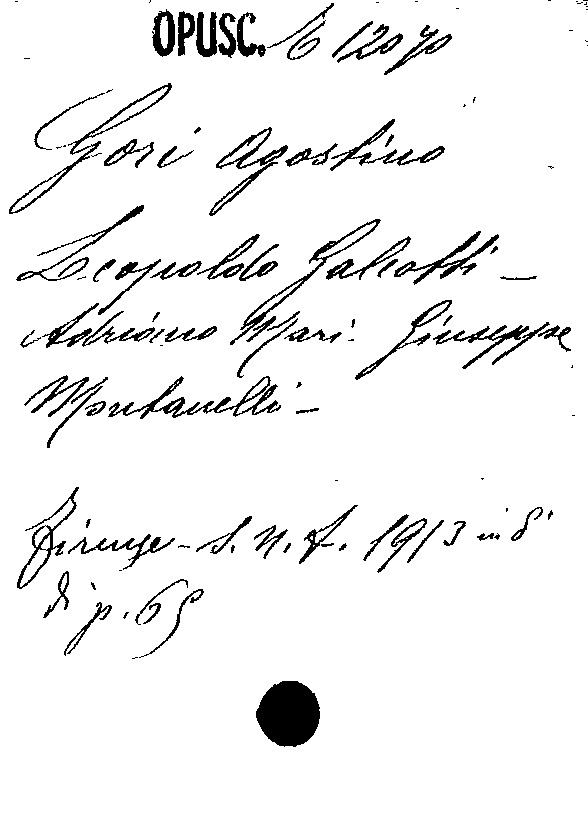 OPUSC. E 12070
Gori Agostino
Leopoldo Galeotti -
Adriano Mari. Giuseppe
Montanelli -
Firenze - s. n. t. 1913 in 8°
di p. 65